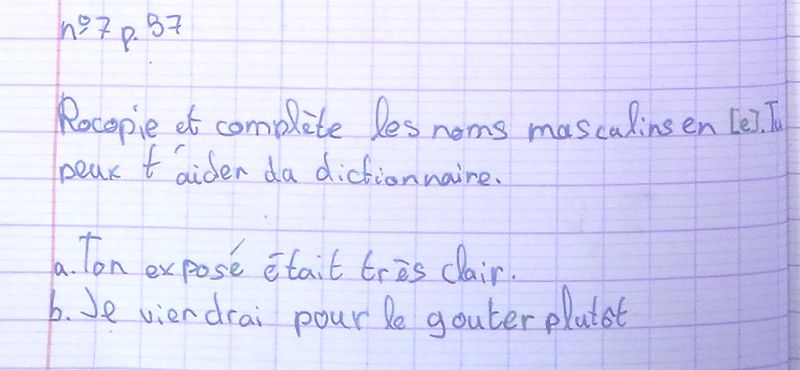 n°7 p.37
Rocopie et complète les noms masculins en [e]. Tu
peux t'aider da dictionnaire.
a. Ton exposé était très clair.
b. Je viendrai pour le gouter plutot